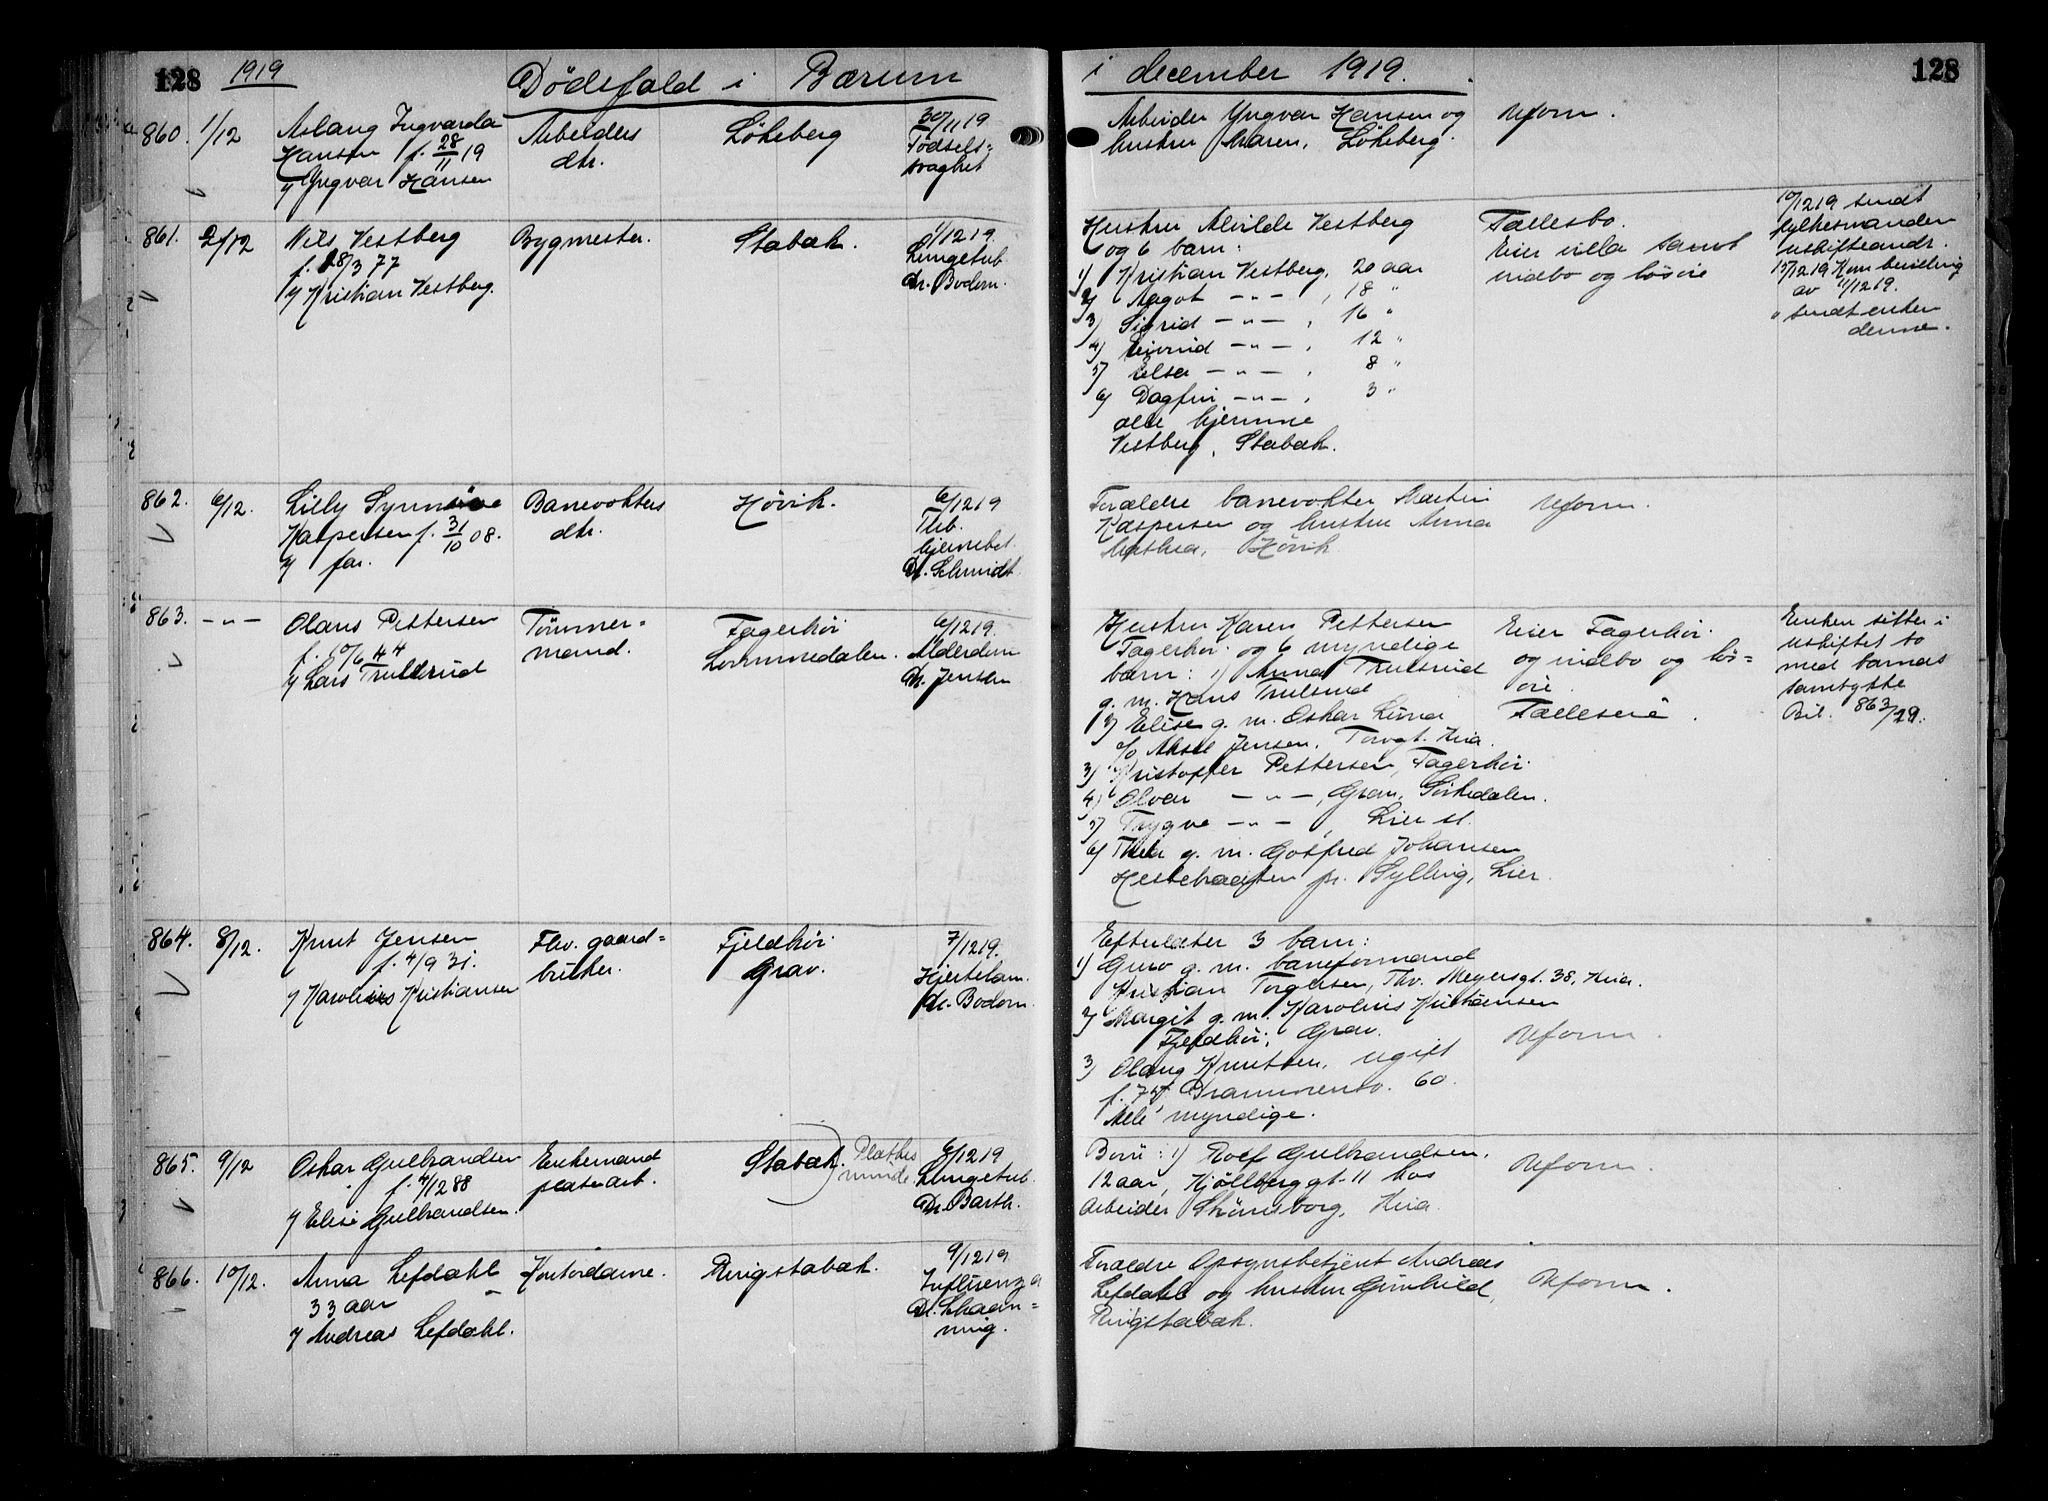 128
1919
Dödsfald i Bærum
i december 1919.
128
860.
1/12
Aslaug Ingvarda
Hansen f. 28/11 19
Yngvar Hansen
Arbeiders
dtr.
Lökeberg
30/11 19
Fødsels-
svaghet
Arbeider Yngvar Hansen og
hustru Maren, Lökeberg.
Uform.
861.
2/12
Nils Vestberg
f. 28/3 77
Kristian Vestberg.
Bygmester.
Stabæk.
1/12 19.
Lungetub.
Dr. Bodom.
Hustru Alvilde Vestberg
og 6 barn:
1) Kristian Vestberg, 20 aar
2) Aagot — " — , 18 "
3) Sigrid — " — , 16 "
4) — " — , 12 "
5) Elsa — " — , 8 "
6) Dagfin — " — , 3 "
alle hjemme
Vestberg, Stabæk.
Fællesbo.
Eier villa samt
indbo og løsøre
10/12 19 sendt
fylkesmanden
uskifteandr.
15/12 19 Kom bevilling
av 11/12 19.
" sendt enken
denne.
862.
6/12.
Lilly Synnöve
Kaspersen f. 31/10 08.
far.
Banevokters
dtr.
Hövik.
6/12 19
Tub.
hjernebet.
Dr. Schmidt.
Forældre banevokter Martin
Kaspersen og hustru Anna
Mathea, Hövik
Uform.
863.
— " —
Olaus Pettersen
f. 10/6 44
Lars Trulserud
Tömmer-
mand.
Fagerhöi
Lommedalen.
6/12 19.
Alderdom
Dr. Jensen
Hustru Karen Pettersen
Fagerhöi og 6 myndige
barn: 1) Anna Trulsrud
g. m. Hans Trulsrud
2) Elise g. m. Oskar Lund
c/o Aksel Jensen, Torvgt. Kria.
3) Kristoffer Pettersen, Fagerhöi
4) Olvar — " —, Grav, Sörkedalen.
5) Trygve — " — , Lier st.
6) Thea g. m. Gotfred Johansen
Hestehaugen pr. Sylling, Lier.
Eier Fagerhöi
og indbo og løs-
öre.
Fælleseie.
Enken sitter i
uskiftet bo
med barnas
samtykke
Bil. 863/29.
864.
8/12.
Knut Jensen
f. 4/9 31.
Karolius Kristiansen
Fhv. gaard-
bruker.
Fjeldhöi
Grav.
7/12 19.
Hjertelam.
Dr. Bodom.
Efterlater 3 barn:
1) Guro g. m. baneformand
Kristian Torgersen, Thv. Meyersgt. 38, Kria.
2) Margit g. m. Karolius Kristiansen
Fjeldhöi, Grav.
3) Olaug Knutsen, ugift
f. 74 Drammensv. 60.
Alle myndige.
Uform.
865.
9/12
Oskar Gulbrandsen
f. 4/12 88
Elise Gulbrandsen.
Enkemand
Stabæk.
6/12 19
Lungetub.
Dr. Barth.
Barn: 1) Rolf Gulbrandsen,
12 aar, Kjölberggt. 11 hos
Arbeider Skönsborg, Kria.
Uform.
866.
10/12.
Anna Lefdahl
33 aar
Andreas Lefdahl.
Kontordame.
Ringstabæk.
9/12 19
Influenza
Dr. Schaan-
ning.
Forældre Opsynsbetjent Andreas
Lefdahl og hustru Gunhild,
Ringstabæk.
Uform.